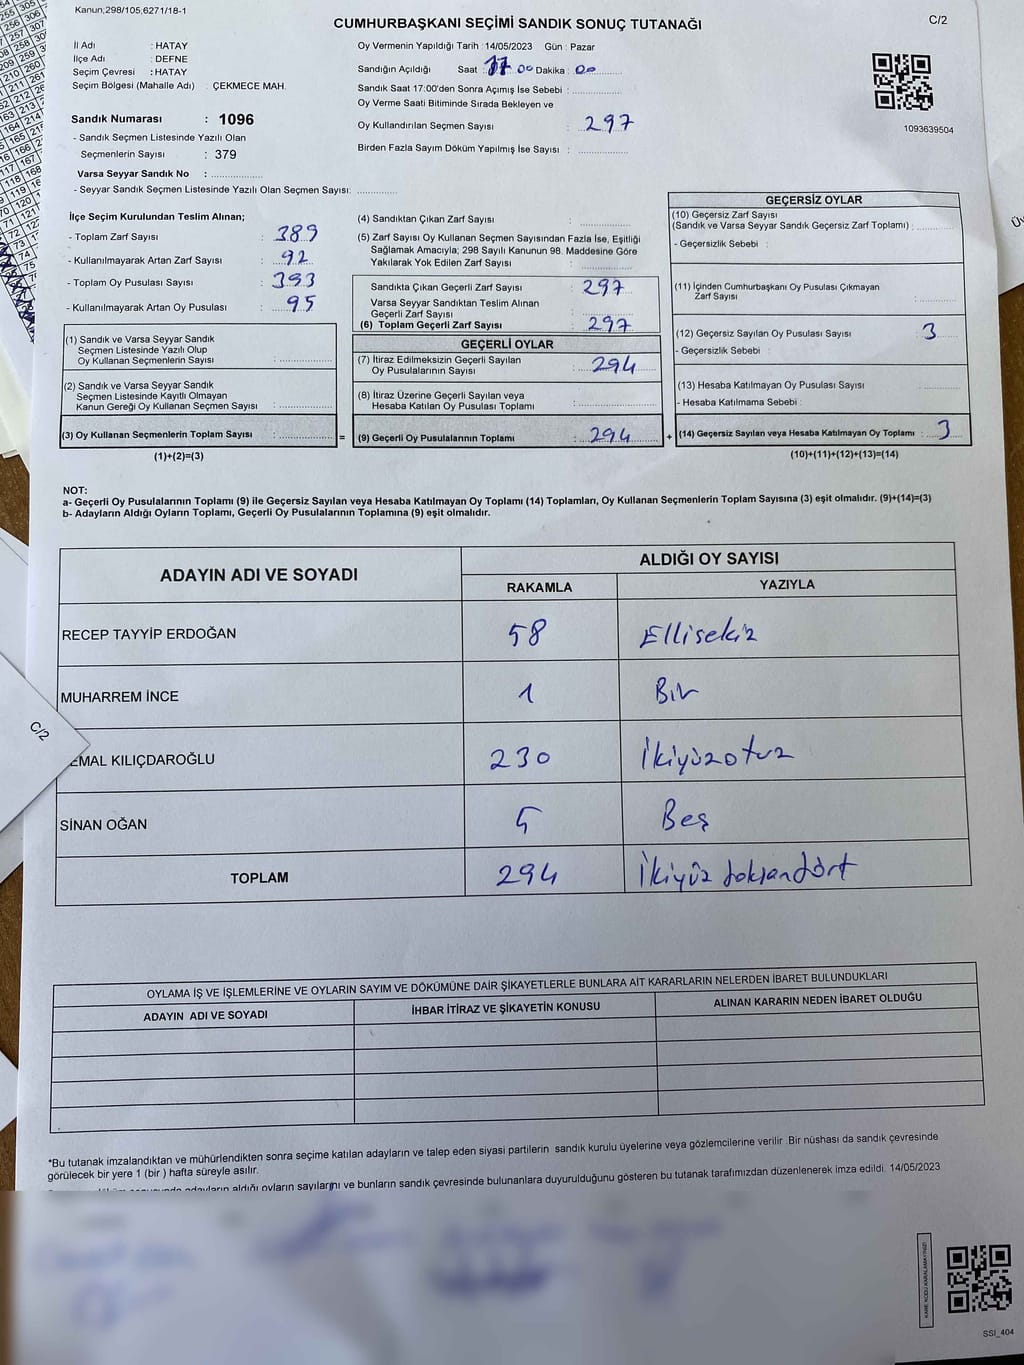 Kanun,298/105,6271/18-1
CUMHURBAŞKANI SEÇİMİ SANDIK SONUÇ TUTANAĞI
C/2
İl Adı : HATAY
İlçe Adı : DEFNE
Seçim Çevresi : HATAY
Seçim Bölgesi (Mahalle Adı) : ÇEKMECE MAH.
Sandık Numarası : 1096
- Sandık Seçmen Listesinde Yazılı Olan
Seçmenlerin Sayısı : 379
Varsa Seyyar Sandık No :
- Seyyar Sandık Seçmen Listesinde Yazılı Olan Seçmen Sayısı:
Oy Vermenin Yapıldığı Tarih :14/05/2023 Gün : Pazar
Sandığın Açıldığı Saat : 17 00 Dakika : 00
Sandık Saat 17:00'den Sonra Açımış İse Sebebi :
Oy Verme Saati Bitiminde Sırada Bekleyen ve
Oy Kullandırılan Seçmen Sayısı : 297
Birden Fazla Sayım Döküm Yapılmış İse Sayısı :
1093639504
İlçe Seçim Kurulundan Teslim Alınan;
- Toplam Zarf Sayısı : 389
- Kullanılmayarak Artan Zarf Sayısı : 92
- Toplam Oy Pusulası Sayısı : 393
- Kullanılmayarak Artan Oy Pusulası : 95
(1) Sandık ve Varsa Seyyar Sandık
Seçmen Listesinde Yazılı Olup
Oy Kullanan Seçmenlerin Sayısı :
(2) Sandık ve Varsa Seyyar Sandık
Seçmen Listesinde Kayıtlı Olmayan
Kanun Gereği Oy Kullanan Seçmen Sayısı :
(3) Oy Kullanan Seçmenlerin Toplam Sayısı :
(1)+(2)=(3)
(4) Sandıktan Çıkan Zarf Sayısı :
(5) Zarf Sayısı Oy Kullanan Seçmen Sayısından Fazla İse, Eşitliği
Sağlamak Amacıyla; 298 Sayılı Kanunun 98. Maddesine Göre
Yakılarak Yok Edilen Zarf Sayısı :
Sandıkta Çıkan Geçerli Zarf Sayısı : 297
Varsa Seyyar Sandıktan Teslim Alınan
Geçerli Zarf Sayısı :
(6) Toplam Geçerli Zarf Sayısı : 297
GEÇERLİ OYLAR
(7) İtiraz Edilmeksizin Geçerli Sayılan
Oy Pusulalarının Sayısı : 294
(8) İtiraz Üzerine Geçerli Sayılan veya
Hesaba Katılan Oy Pusulası Toplamı :
= (9) Geçerli Oy Pusulalarının Toplamı : 294
GEÇERSİZ OYLAR
(10) Geçersiz Zarf Sayısı
(Sandık ve Varsa Seyyar Sandık Geçersiz Zarf Toplamı) :
- Geçersizlik Sebebi :
(11) İçinden Cumhurbaşkanı Oy Pusulası Çıkmayan
Zarf Sayısı :
(12) Geçersiz Sayılan Oy Pusulası Sayısı : 3
- Geçersizlik Sebebi :
(13) Hesaba Katılmayan Oy Pusulası Sayısı :
- Hesaba Katılmama Sebebi :
+ (14) Geçersiz Sayılan veya Hesaba Katılmayan Oy Toplamı : 3
(10)+(11)+(12)+(13)=(14)
NOT:
a- Geçerli Oy Pusulalarının Toplamı (9) ile Geçersiz Sayılan veya Hesaba Katılmayan Oy Toplamı (14) Toplamları, Oy Kullanan Seçmenlerin Toplam Sayısına (3) eşit olmalıdır. (9)+(14)=(3)
b- Adayların Aldığı Oyların Toplamı, Geçerli Oy Pusulalarının Toplamına (9) eşit olmalıdır.
ADAYIN ADI VE SOYADI
ALDIĞI OY SAYISI
RAKAMLA YAZIYLA
RECEP TAYYİP ERDOĞAN 58 Ellisekiz
MUHARREM İNCE 1 Bir
EMAL KILIÇDAROĞLU 230 İkiyüzotuz
SİNAN OĞAN 5 Beş
TOPLAM 294 İkiyüz doksandört
C/2
OYLAMA İŞ VE İŞLEMLERİNE VE OYLARIN SAYIM VE DÖKÜMÜNE DAİR ŞİKAYETLERLE BUNLARA AİT KARARLARIN NELERDEN İBARET BULUNDUKLARI
ADAYIN ADI VE SOYADI İHBAR İTİRAZ VE ŞİKAYETİN KONUSU ALINAN KARARIN NEDEN İBARET OLDUĞU
*Bu tutanak imzalandıktan ve mühürlendikten sonra seçime katılan adayların ve talep eden siyasi partilerin sandık kurulu üyelerine veya gözlemcilerine verilir .Bir nüshası da sandık çevresinde
görülecek bir yere 1 (bir ) hafta süreyle asılır.
adayların aldığı oyların sayılarını ve bunların sandık çevresinde bulunanlara duyurulduğunu gösteren bu tutanak tarafımızdan düzenlenerek imza edildi. 14/05/2023
SSI_404